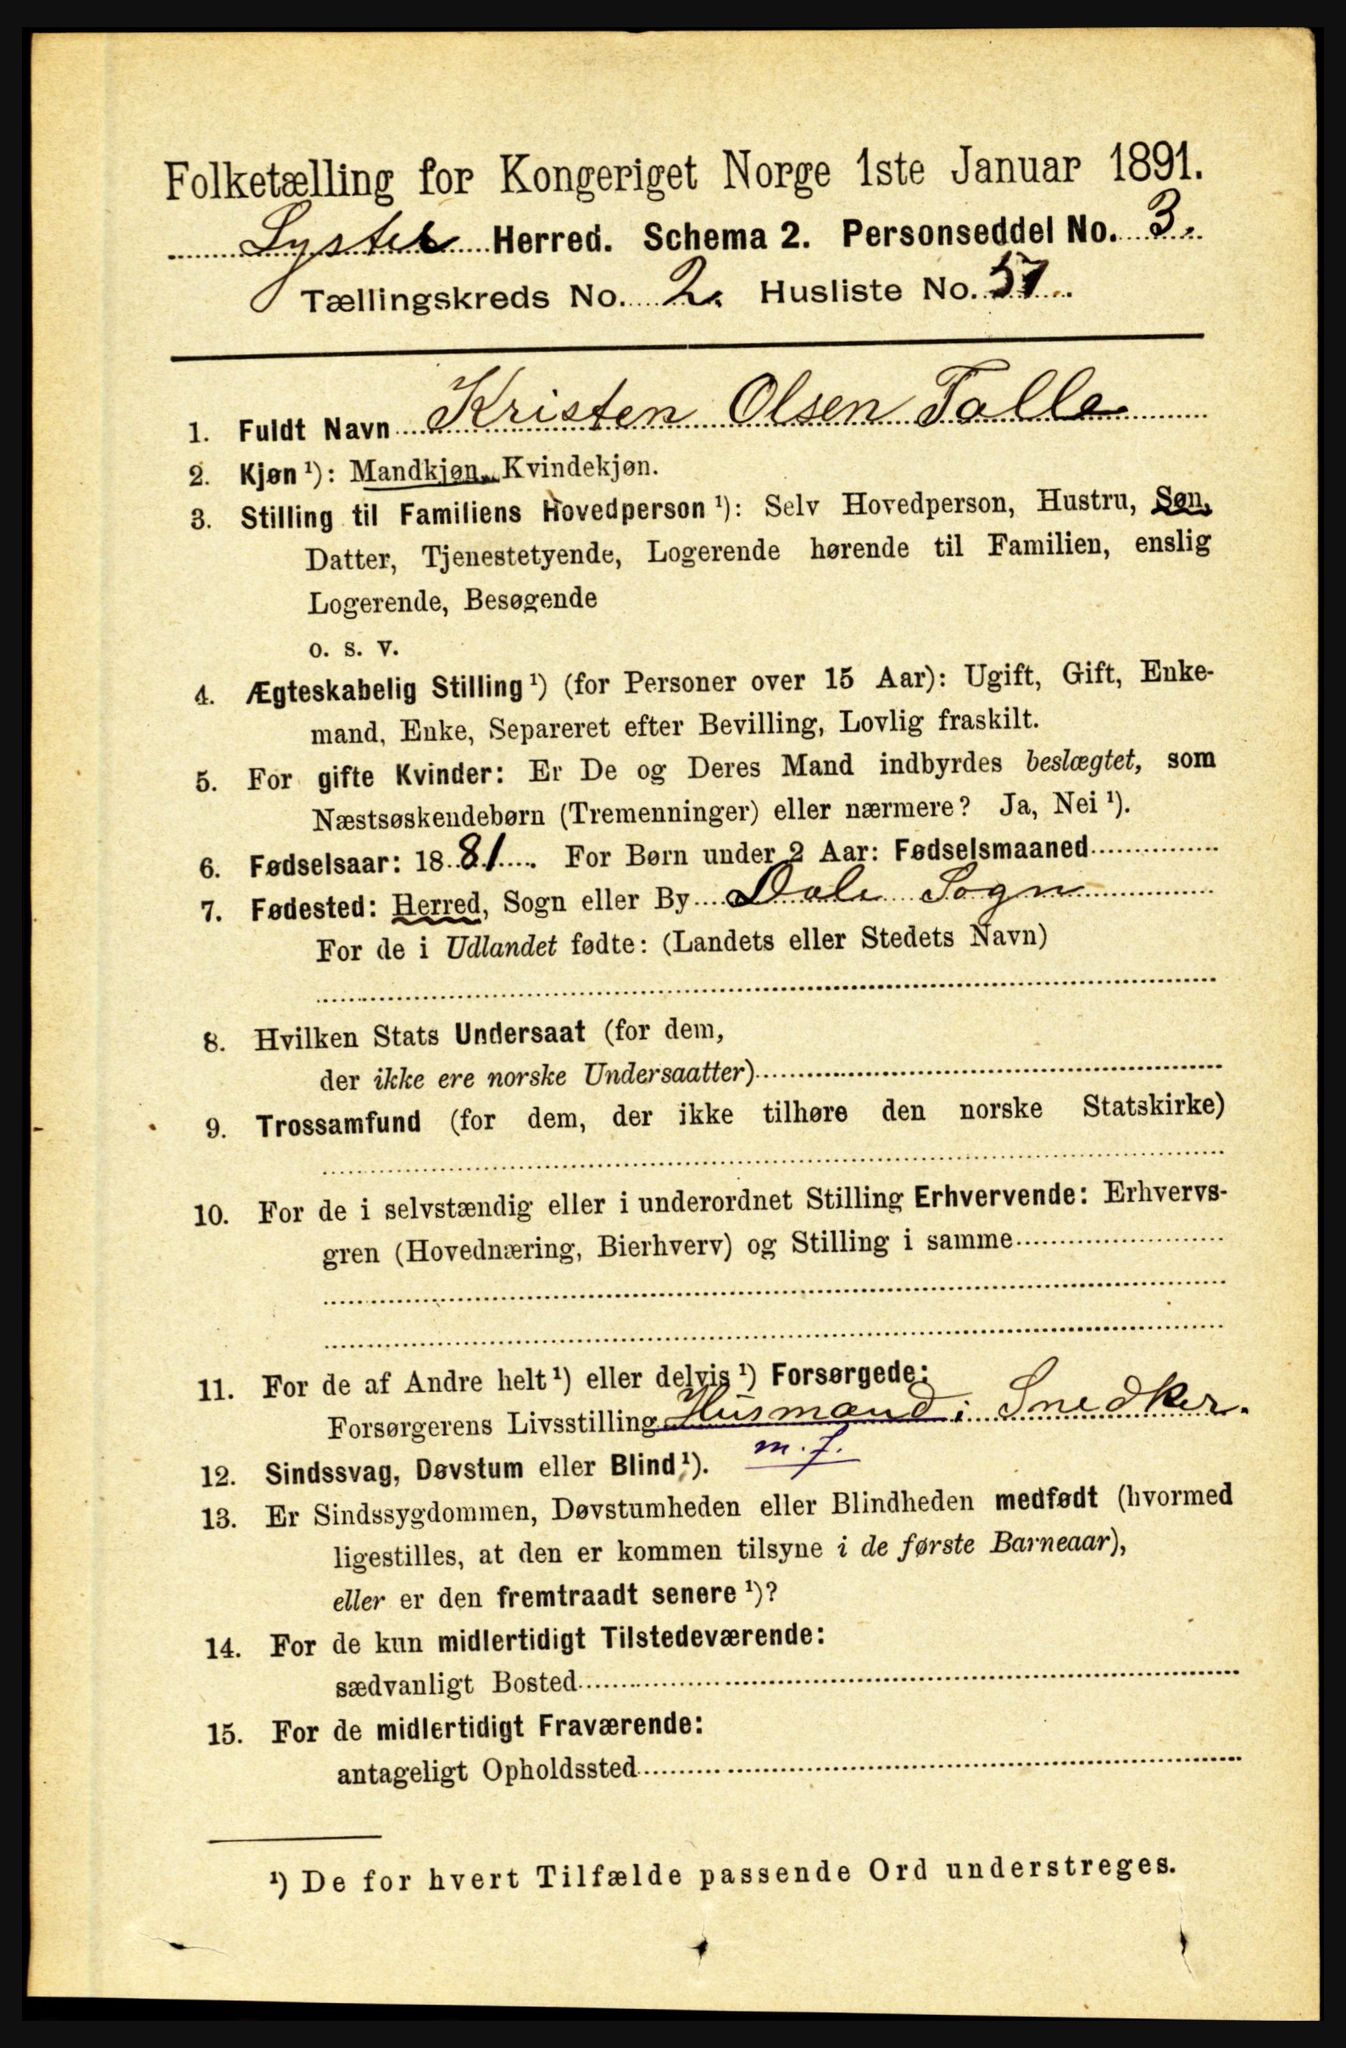 Folketælling for Kongeriget Norge 1ste Januar 1891.
Lyster Herred. Schema 2. Personseddel No. 3.
Tællingskreds No. 2. Husliste No. 57.
1. Fuldt Navn Kristen Olsen Talle
2. Kjøn ¹): Mandkjøn, Kvindekjøn.
3. Stilling til Familiens Hovedperson ¹): Selv Hovedperson, Hustru, Søn,
Datter, Tjenestetyende, Logerende hørende til Familien, enslig
Logerende, Besøgende
o. s. v.
4. Ægteskabelig Stilling ¹) (for Personer over 15 Aar): Ugift, Gift, Enke-
mand, Enke, Separeret efter Bevilling, Lovlig fraskilt.
5. For gifte Kvinder: Er De og Deres Mand indbyrdes beslægtet, som
Næstsøskendebørn (Tremenninger) eller nærmere? Ja, Nei ¹).
6. Fødselsaar: 1881. For Børn under 2 Aar: Fødselsmaaned
7. Fødested: Herred, Sogn eller By Dale Sogn
For de i Udlandet fødte: (Landets eller Stedets Navn)
8. Hvilken Stats Undersaat (for dem,
der ikke ere norske Undersaatter)
9. Trossamfund (for dem, der ikke tilhøre den norske Statskirke)
10. For de i selvstændig eller i underordnet Stilling Erhvervende: Erhvervs-
gren (Hovednæring, Bierhverv) og Stilling i samme
11. For de af Andre helt ¹) eller delvis ¹) Forsørgede:
Forsørgerens Livsstilling Husmand i Snedker.
m. j.
12. Sindssvag, Døvstum eller Blind ¹).
13. Er Sindssygdommen, Døvstumheden eller Blindheden medfødt (hvormed
ligestilles, at den er kommen tilsyne i de første Barneaar),
eller er den fremtraadt senere ¹)?
14. For de kun midlertidigt Tilstedeværende:
sædvanligt Bosted
15. For de midlertidigt Fraværende:
antageligt Opholdssted
¹) De for hvert Tilfælde passende Ord understreges.